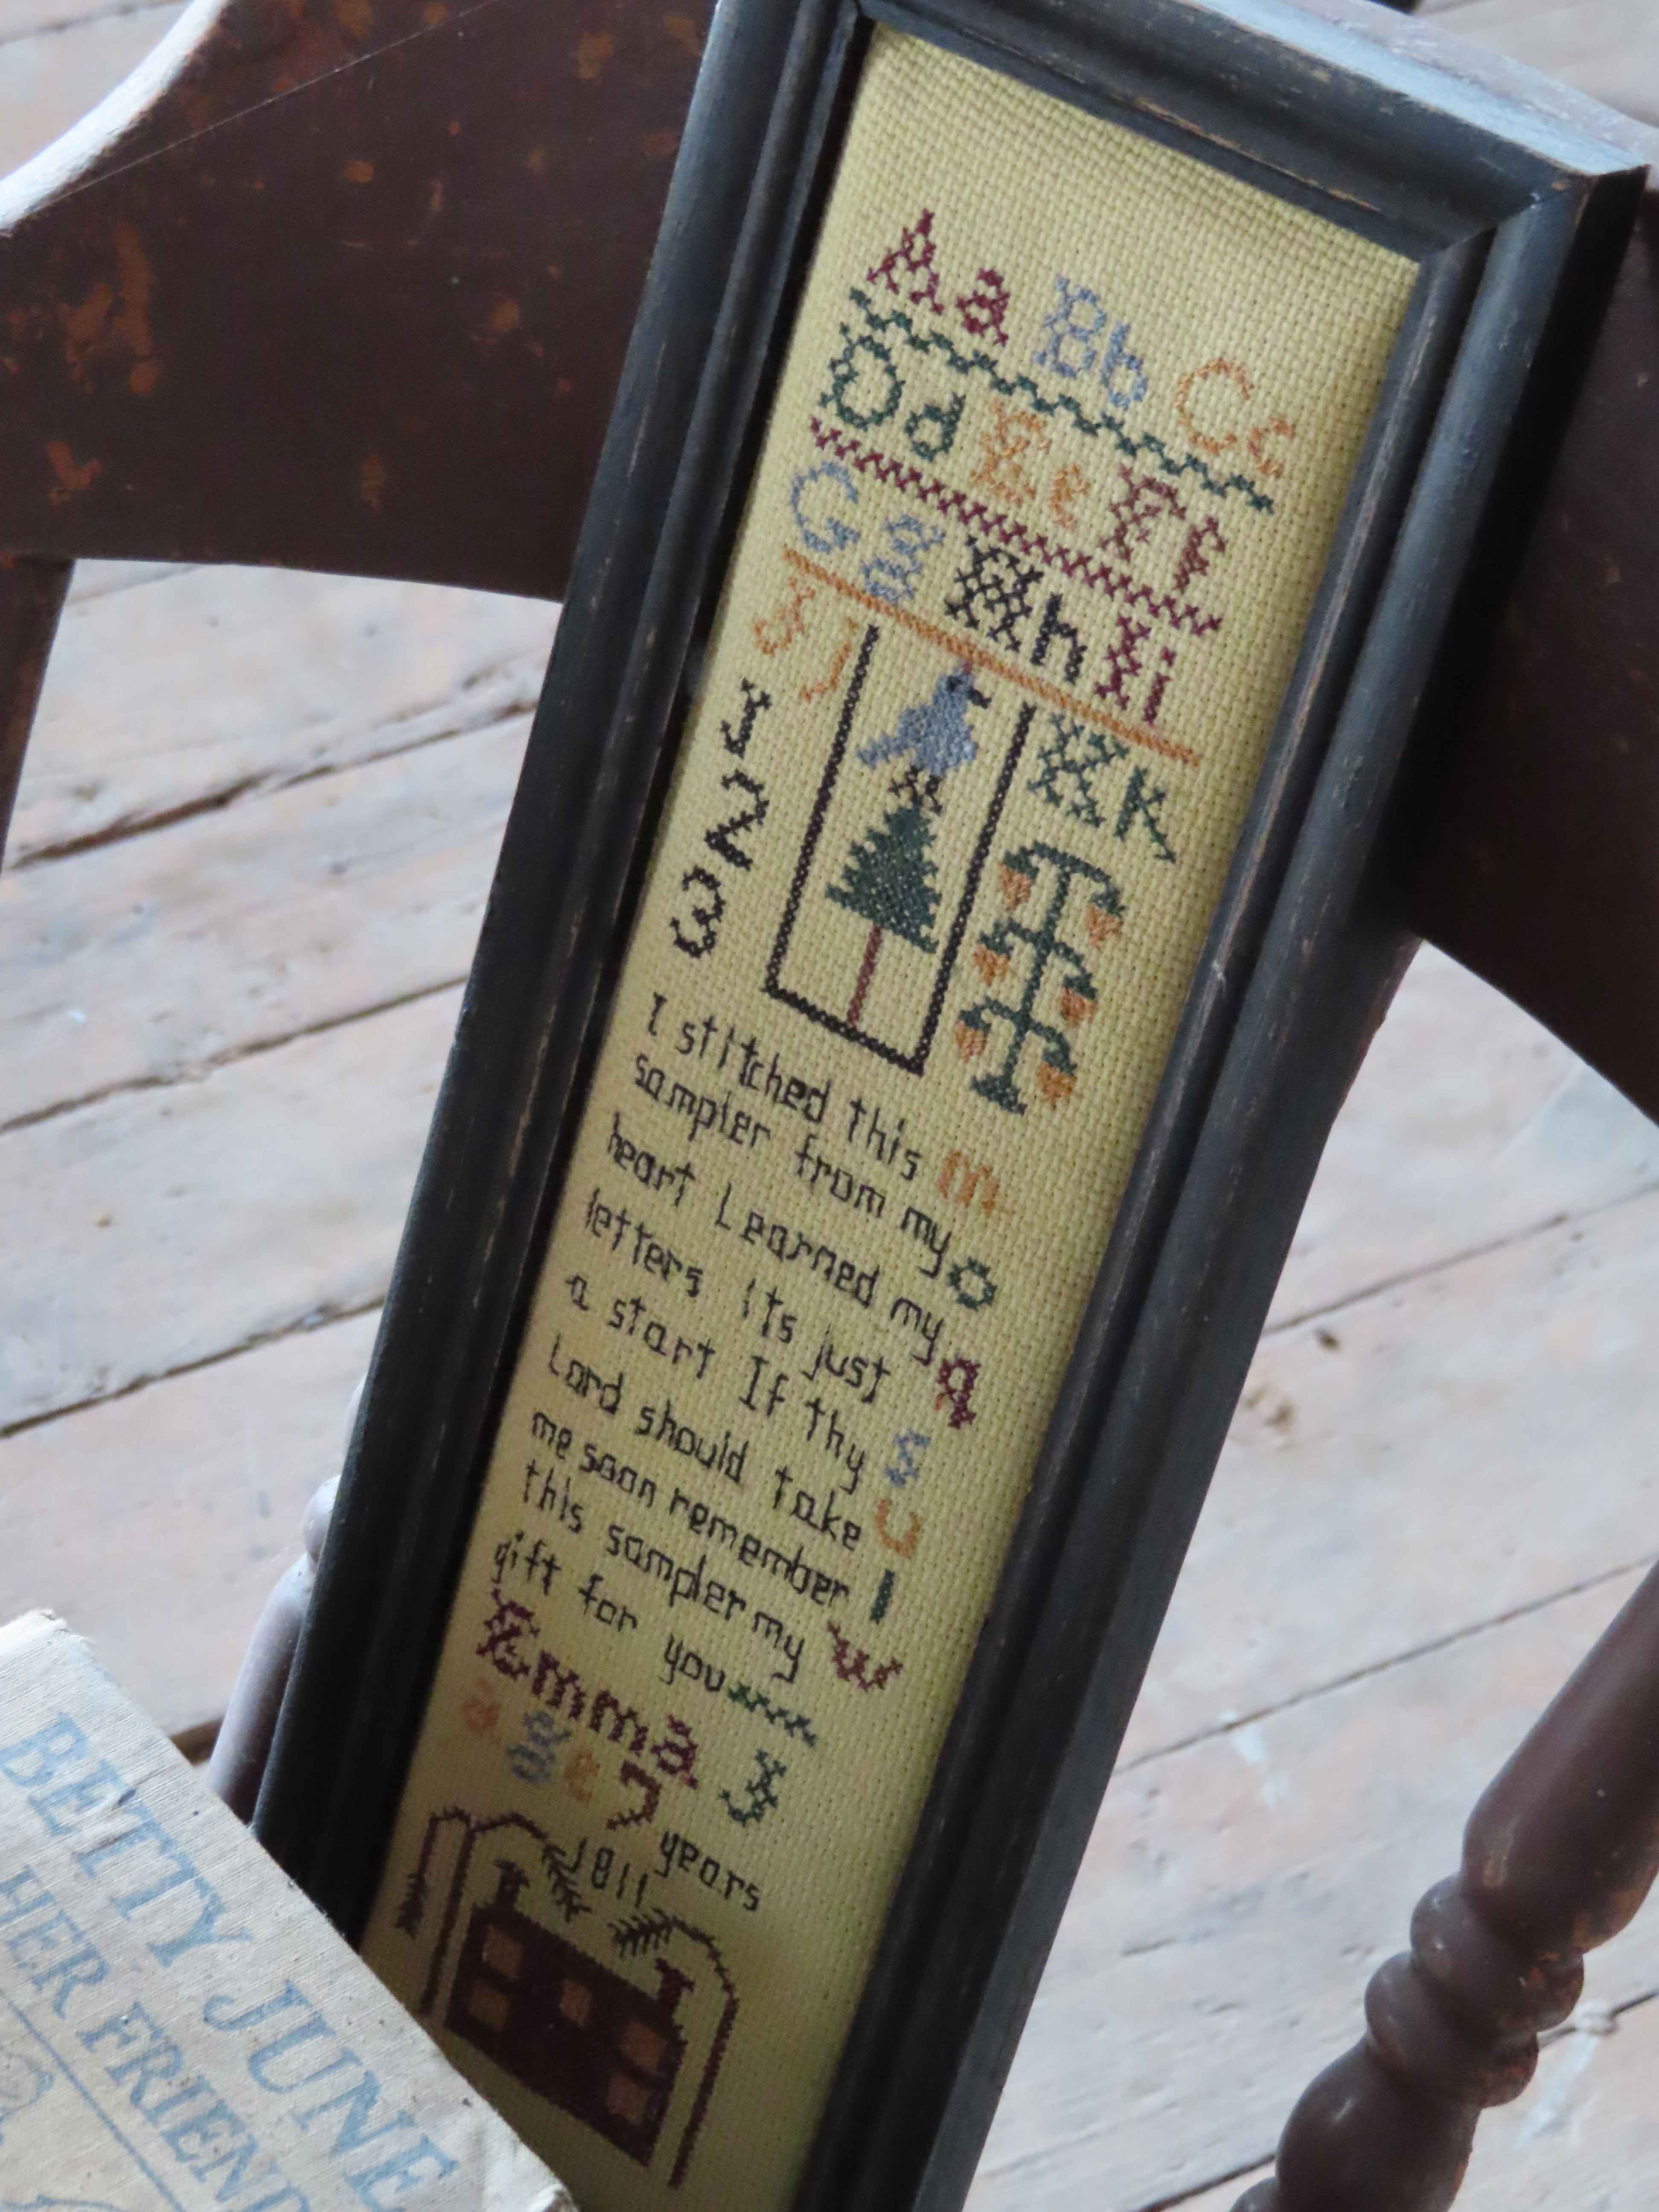 Aa Bb Cc
Dd Ee Ff
Gg Hh Ii
Jj Kk
1
2
3
I stitched this m
sampler from my o
heart Learned my q
letters its just s
a start If thy u
Lord should take
me soon remember
this sampler my w
gift for you
Emma J
age 7 years
1811
BETTY JUNE
HER FRIEND